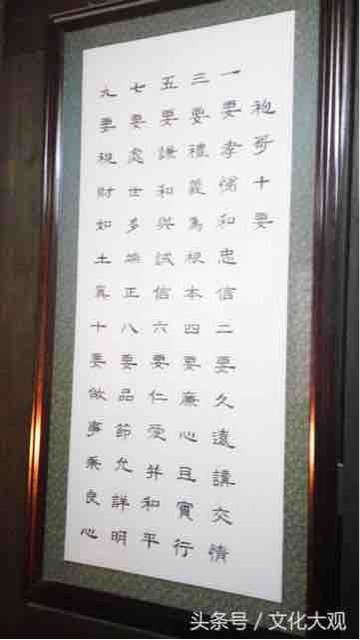 袍哥十要
一要孝悌和忠信二要久遠講交情
三要禮義為根本四要廉心且實行
五要謙和與誠信六要仁愛并和平
七要處世多端正八要品節允詳明
九要視財如土真十要做事秉良心
头条号／文化大观